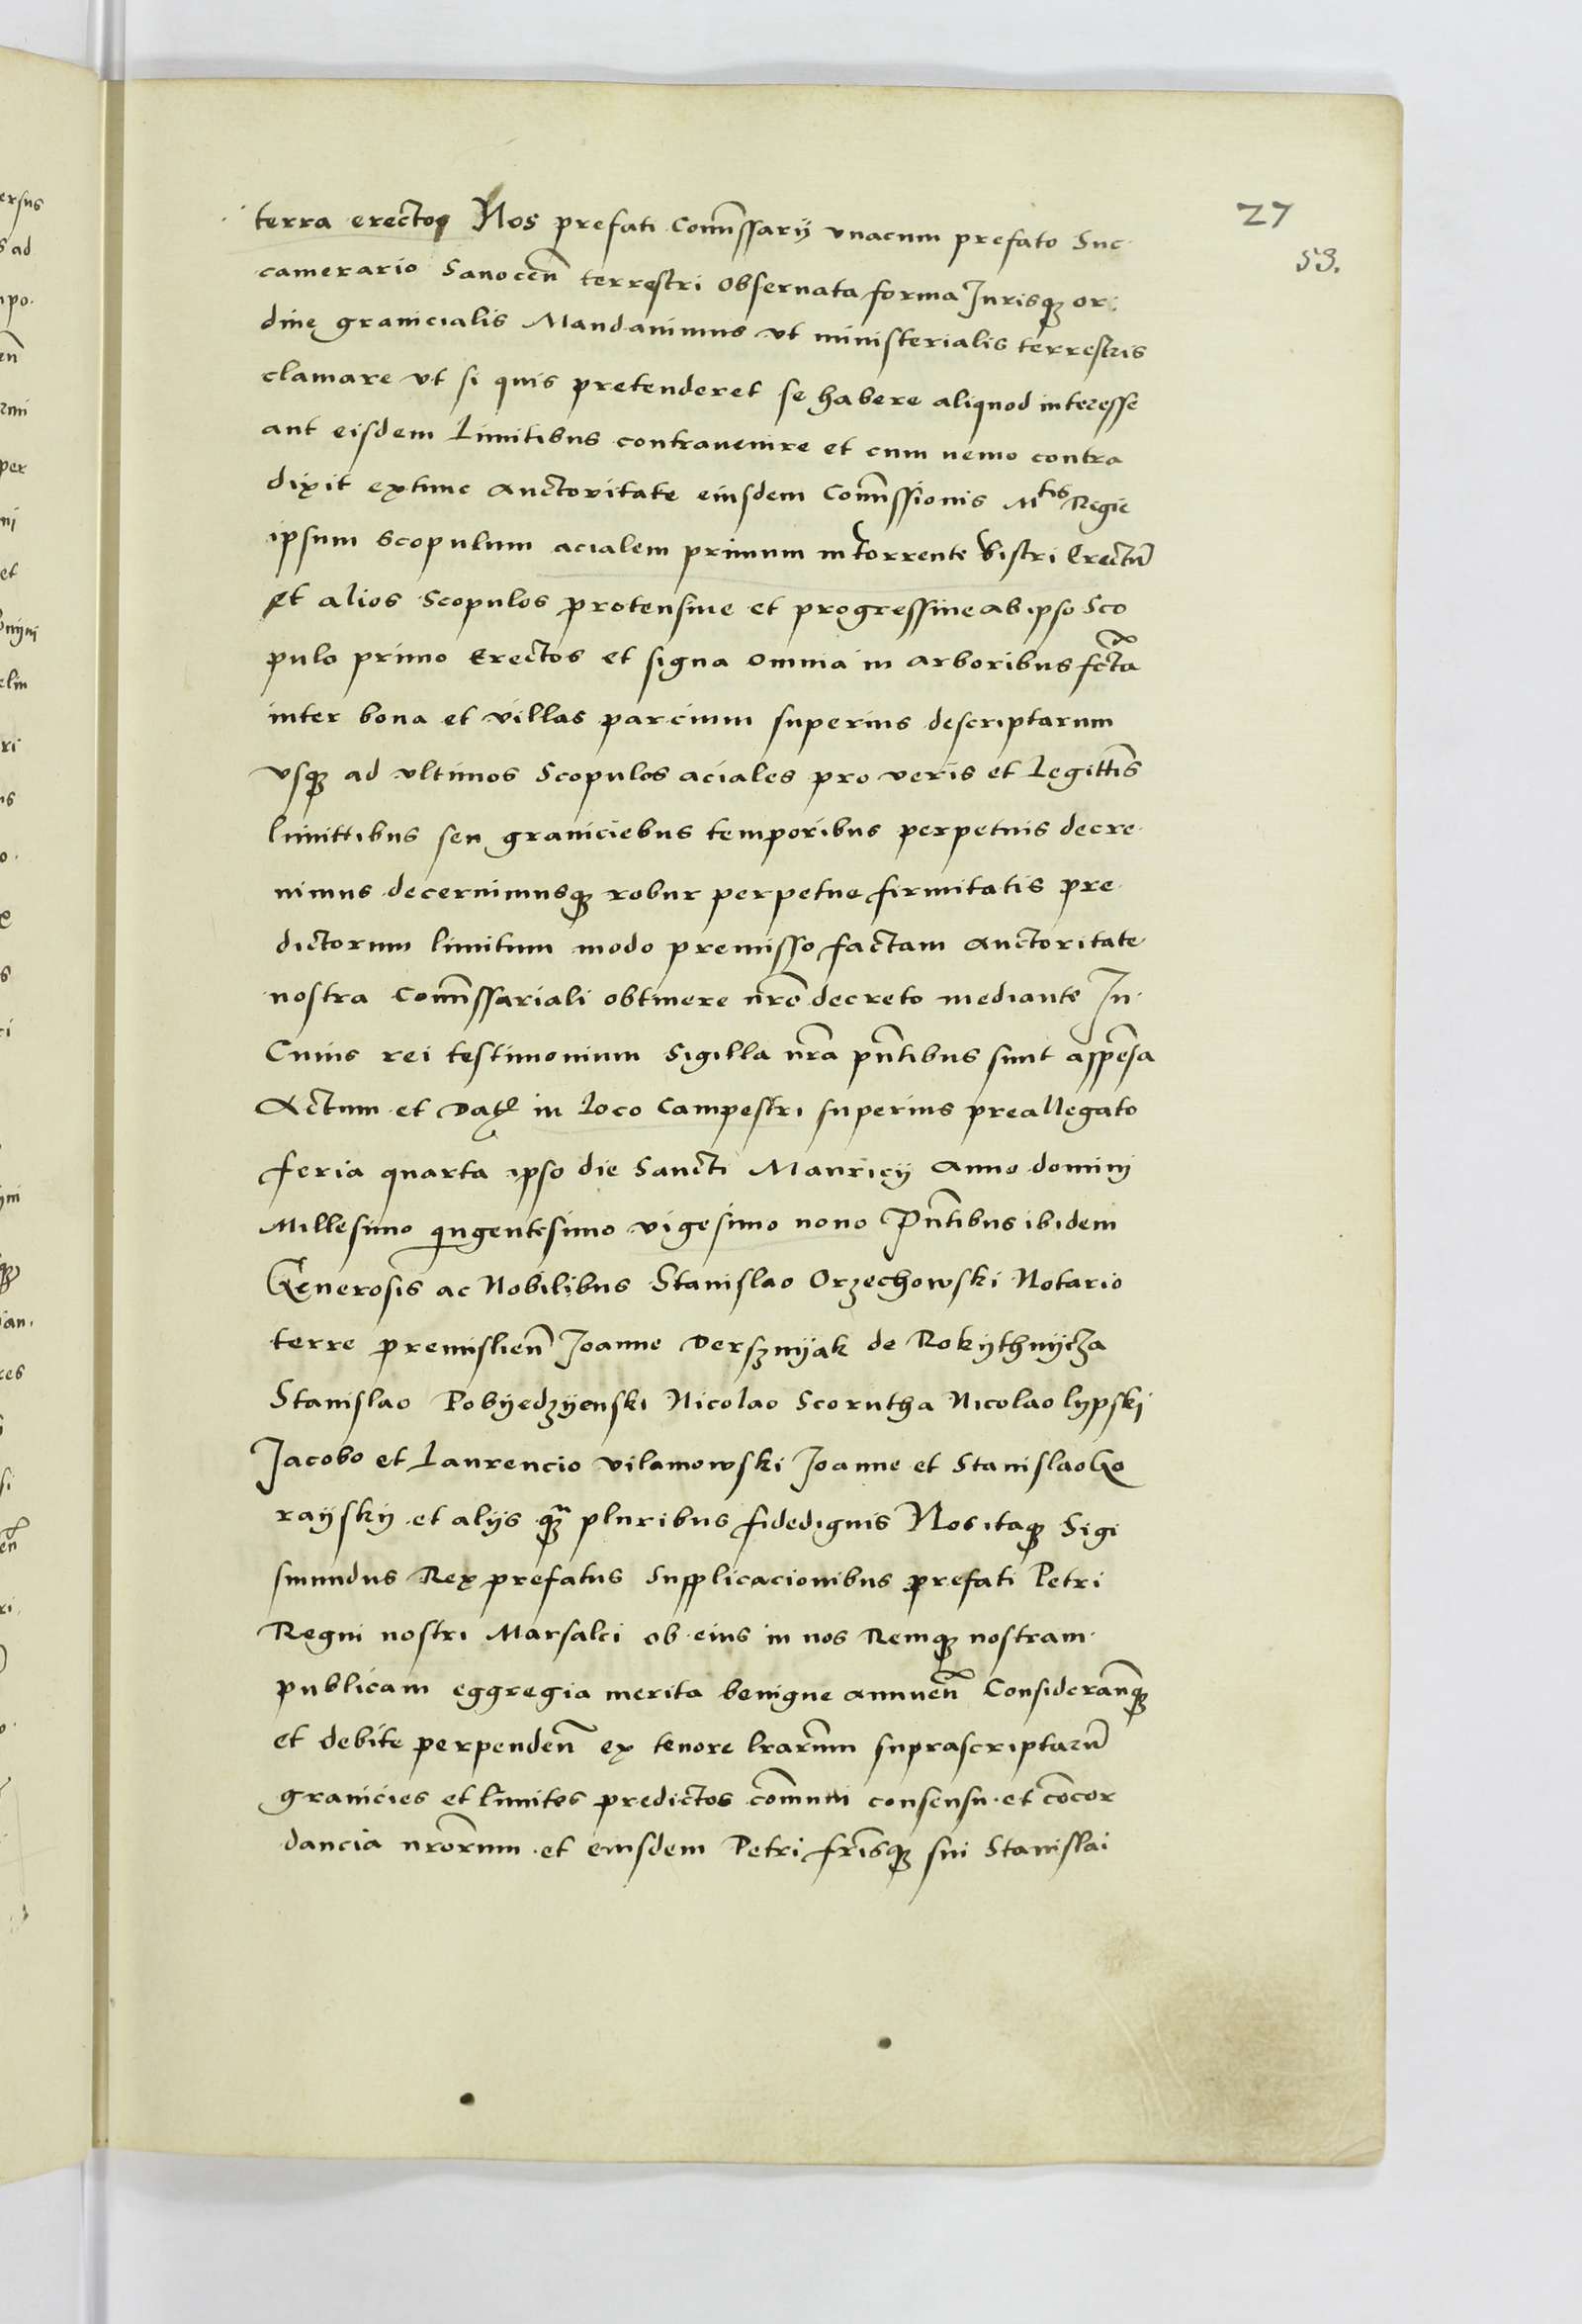 27
53.
terra erectos Nos prefati Com̃issarij vnacum prefato Suc
camerario Sanoceñ terrestri Obseruata forma Jurisqȝ or:
dine granicialis Mandauimus vt ministerialis terrestris
clamare vt si quis pretenderet se habere aliquod interesse
aut eisdem Limitibus contrauenire et cum nemo contra
dixit extunc Auctoritate eiusdem Com̃issionis Mtis Regie
ipsum Scopulum acialem primum in torrente Vistri Erectũ
Et alios Scopulos protensiue et progressiue ab ipso Sco
pulo primo Erectos et signa omnia in arboribus fcta
inter bona et villas parcium superius descriptarum
vsqȝ ad vltimos Scopulos aciales pro veris et Legittĩs
limittibus seu graniciebus temporibus perpetuis decre
uimus decernimusqȝ robur perpetue firmitatis pre
dictorum limitum modo premisso factam auctoritate
nostra Com̃issariali obtinere nr̃o decreto mediante In
Cuius rei testimonium Sigilla nr̃a pñtibus sunt appẽsa
Actum et Dat in Loco Campestri superius preallegato
feria quarta ipso die Sancti Mauricij Anno dominj
Millesimo quingentesimo vigesimo nono Pñtibus ibidem
Generosis ac Nobilibus Stanislao Orzechowski Notario
terre premislieñ Joanne Dersznijak de Rokijthnijcza
Stanislao Pobijedzijenski Nicolao Scorutha Nicolao lypskj
Jacobo et Laurencio vilamowski Joanne et Stanislao Go
raijskij et alijs qȝ pluribus fidedignis Nos itaqȝ Sigi
smundus Rex prefatus Supplicacionibus prefati Petri
Regni nostri Marsalci ob eius in nos Remqȝ nostram
publicam eggregia merita benigne annueñ Considerañqȝ
et debite perpendeñ ex tenore lrarum̃ suprascriptarũ
granicies et limites predictos com̃uni consensu et cõcor
dancia nr̃orum et eiusdem Petri fr̃isqȝ sui Stanislai